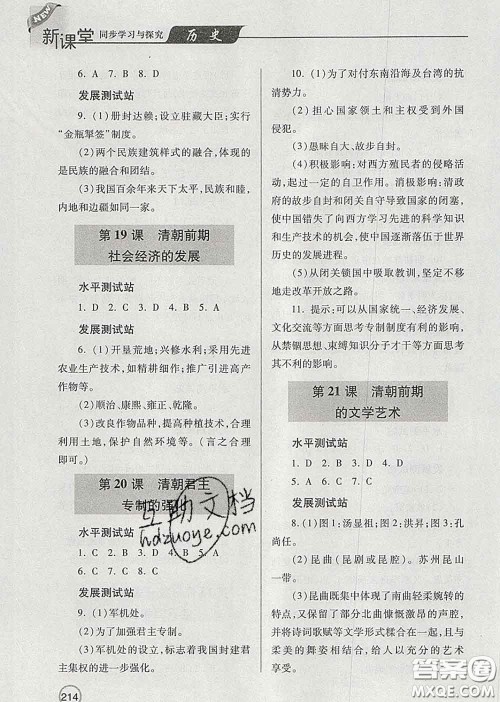 NEW
新课堂 同步学习与探究 历史
6. A 7. B 8. D
发展测试站
9. (1)册封达赖;设立驻藏大臣;实行
“金瓶掣签”制度。
(2)两个民族建筑样式的融合,体现的
是民族的融合和团结。
(3)我国百余年来天下太平,民族和睦,
内地和边疆如同一家。
第 19 课 清朝前期
社会经济的发展
水平测试站
1. C 2. D 3. B 4. B 5. A
发展测试站
6. (1)开垦荒地;兴修水利;采用先进
农业生产技术,如精耕细作;推广引进高产
作物等。
(2)顺治、康熙、雍正、乾隆。
(3)改良作物品种,提高种植技术,合理
利用土地,保护自然环境等。(言之合理
即可。)
第 20 课 清朝君主
专制的强化
水平测试站
1. C 2. B 3. D 4. B 5. A
发展测试站
9. (1)军机处。
(2)为了加强君主专制。
(3)军机处的设立,标志着我国封建君
主集权的进一步强化。
214
10. (1)为了对付东南沿海及台湾的抗
清势力。
(2)担心国家领土和主权受到外国
侵犯。
(3)愚昧自大、故步自封。
(4)积极影响:对西方殖民者的侵略活
动,起过一定的自卫作用。消极影响:清政
府的故步自封和闭关自守导致国家的闭塞,
使中国错失了向西方学习先进的科学知识
和生产技术的机遇,使中国逐渐落伍于世界
历史的发展。
(5)从闭关锁国中吸取教训,坚定不移
地走改革开放之路。
11. 提示:可以从国家统一、经济发展、
文化交流等方面思考专制制度有利的影响,
从禁锢思想、束缚知识分子才干等方面思考
其不利的影响。
第 21 课 清朝前期
的文学艺术
水平测试站
1. D 2. D 3. B 4. C 5. D
发展测试站
8. (1)图1:汤显祖;图2:洪昇;图3:孔
尚任。
(2)昆曲(昆剧或昆腔)。苏州昆山
一带。
(3)昆曲既集中体现了南曲轻柔婉转的
特点,又保留了北曲慷慨激昂的声腔,
并将诗词歌赋等文学形式糅合在一起,与优
美的舞姿相结合,给人以充分的艺术
享受。
互助文档
hdzuoye.com
答案圈
MXQE.COM